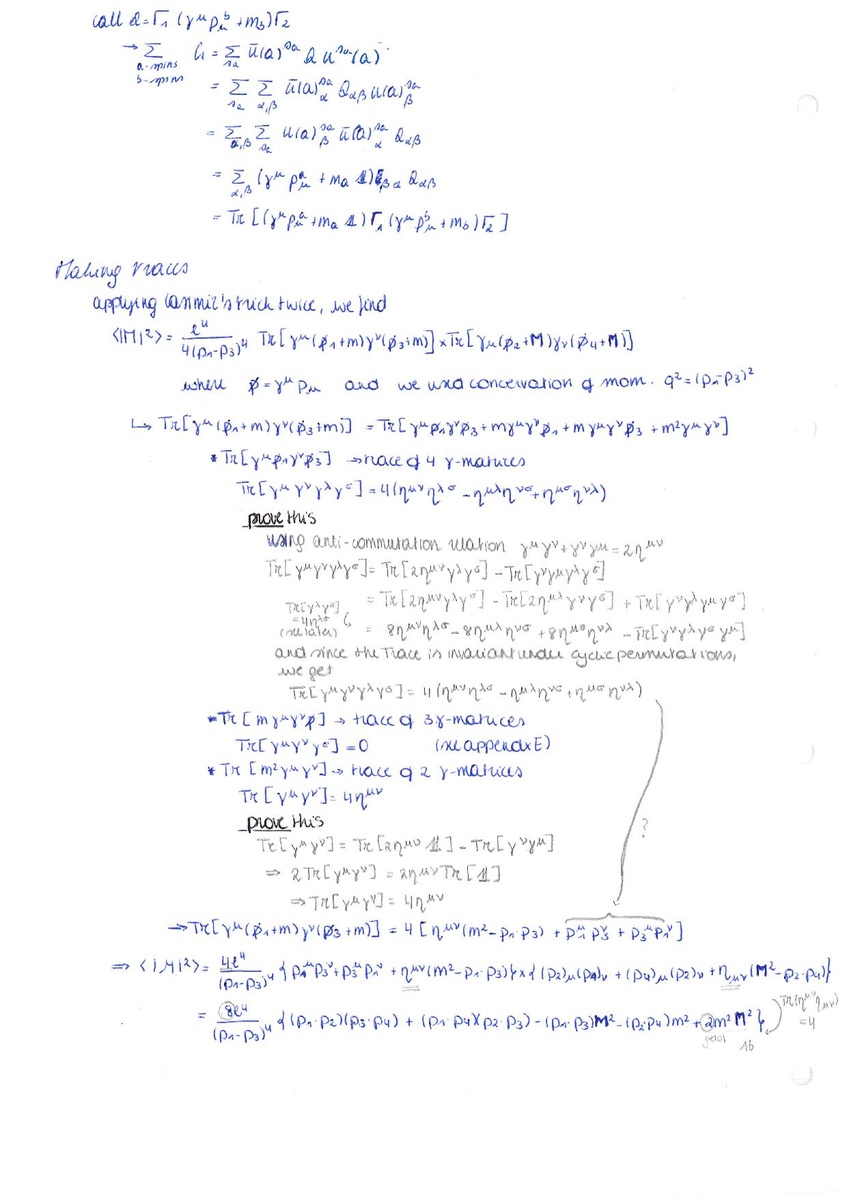 call Q = Γ₁ (γ^μ p_μ^b + m_b) Γ₂
→ Σ_{a-spins b-spins} G = Σ_{s_a} ū(a)^{s_a} Q u^{s_a}(a)
= Σ_{s_a} Σ_{α,β} ū(a)_α^{s_a} Q_{αβ} u(a)_β^{s_a}
= Σ_{α,β} Σ_{s_a} u(a)_β^{s_a} ū(a)_α^{s_a} Q_{αβ}
= Σ_{α,β} (γ^μ p_μ^a + m_a 𝟙)_{βα} Q_{αβ}
= Tr [(γ^μ p_μ^a + m_a 𝟙) Γ₁ (γ^μ p_μ^b + m_b) Γ₂]
Making traces
applying Casimir's trick twice, we find
⟨|M|²⟩ = e⁴/4(p₁-p₃)⁴ Tr[γ^μ(p̸₁+m)γ^ν(p̸₃+m)] × Tr[γ_μ(p̸₂+M)γ_ν(p̸₄+M)]
where p̸ = γ^μ p_μ and we used conservation of mom. q² = (p₁-p₃)²
↳ Tr[γ^μ(p̸₁+m)γ^ν(p̸₃+m)] = Tr[γ^μ p̸₁ γ^ν p̸₃ + mγ^μγ^ν p̸₁ + mγ^μγ^ν p̸₃ + m²γ^μγ^ν]
* Tr[γ^μ p̸₁ γ^ν p̸₃] → trace of 4 γ-matrices
Tr[γ^μγ^νγ^λγ^σ] = 4(η^{μν}η^{λσ} - η^{μλ}η^{νσ} + η^{μσ}η^{νλ})
prove this
using anti-commutation relation γ^μγ^ν + γ^νγ^μ = 2η^{μν}
Tr[γ^μγ^νγ^λγ^σ] = Tr[2η^{μν}γ^λγ^σ] - Tr[γ^νγ^μγ^λγ^σ]
= Tr[2η^{μν}γ^λγ^σ] - Tr[2η^{μλ}γ^νγ^σ] + Tr[γ^νγ^λγ^μγ^σ]
Tr[γ^λγ^σ] = 4η^{λσ} (see later)
= 8η^{μν}η^{λσ} - 8η^{μλ}η^{νσ} + 8η^{μσ}η^{νλ} - Tr[γ^νγ^λγ^σγ^μ]
and since the trace is invariant under cyclic permutations,
we get
Tr[γ^μγ^νγ^λγ^σ] = 4(η^{μν}η^{λσ} - η^{μλ}η^{νσ} + η^{μσ}η^{νλ})
* Tr[mγ^μγ^ν p̸] → trace of 3 γ-matrices
Tr[γ^μγ^νγ^σ] = 0 (see appendix E)
* Tr[m²γ^μγ^ν] → trace of 2 γ-matrices
Tr[γ^μγ^ν] = 4η^{μν}
prove this
Tr[γ^μγ^ν] = Tr[2η^{μν} 𝟙] - Tr[γ^νγ^μ]
?
⇒ 2Tr[γ^μγ^ν] = 2η^{μν} Tr[𝟙]
⇒ Tr[γ^μγ^ν] = 4η^{μν}
→ Tr[γ^μ(p̸₁+m)γ^ν(p̸₃+m)] = 4[η^{μν}(m² - p₁·p₃) + p₁^μ p₃^ν + p₃^μ p₁^ν]
⇒ ⟨|M|²⟩ = 4e⁴/(p₁-p₃)⁴ {p₁^μ p₃^ν + p₃^μ p₁^ν + η^{μν}(m² - p₁·p₃)} × {(p₂)_μ(p₄)_ν + (p₄)_μ(p₂)_ν + η_{μν}(M² - p₂·p₄)}
= 8e⁴/(p₁-p₃)⁴ {(p₁·p₂)(p₃·p₄) + (p₁·p₄)(p₂·p₃) - (p₁·p₃)M² - (p₂·p₄)m² + 2m²M²}
Tr(η^{μν}η_{μν}) = 4
16